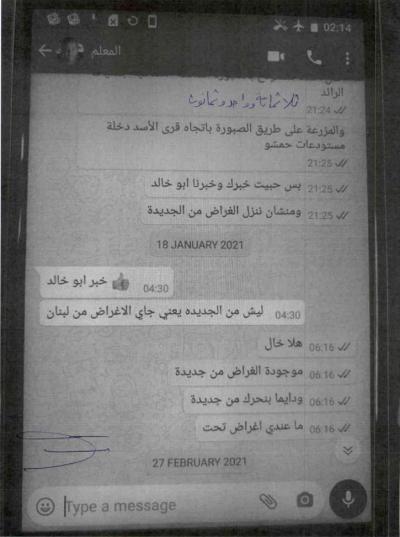 02:14
المعلم
الرائد
ثلاثمائة وواحد وثمانون
21:24
والمزرعة على طريق الصبورة باتجاه قرى الأسد دخلة
مستودعات حمشو
21:25
بس حبيت خبرك وخبرنا ابو خالد 21:25
ومنشان ننزل الغراض من الجديدة 21:25
18 JANUARY 2021
خبر ابو خالد 👍 04:30
ليش من الجديده يعني جاي الاغراض من لبنان 04:30
هلا خال 06:16
موجودة الغراض من جديدة 06:16
ودايما بنحرك من جديدة 06:16
ما عندي اغراض تحت 06:16
27 FEBRUARY 2021
Type a message